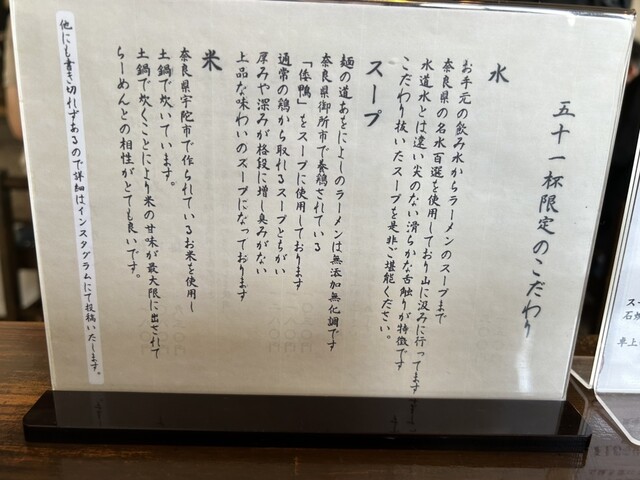 五十一杯限定のこだわり
水
お手元の飲み水からラーメンのスープまで
奈良県の名水百選を使用しており山に汲みに行ってます
水道水とは違い尖のない滑らかな舌触りが特徴です
こだわり抜いたスープを是非ご堪能ください。
スープ
麺の道あをによしのラーメンは無添加無化調です
奈良県御所市で養鶏されている
「倭鴨」をスープに使用しております
通常の鶏から取れるスープとちがい
厚みや深みが格段に増し臭みがない
上品な味わいのスープになっております
米
奈良県宇陀市で作られているお米を使用し
土鍋で炊いています。
土鍋で炊くことにより米の甘味が最大限に出されて
らーめんとの相性がとても良いです。
他にも書き切れずあるので詳細はインスタグラムにて投稿いたします。
ス
石焼
卓上